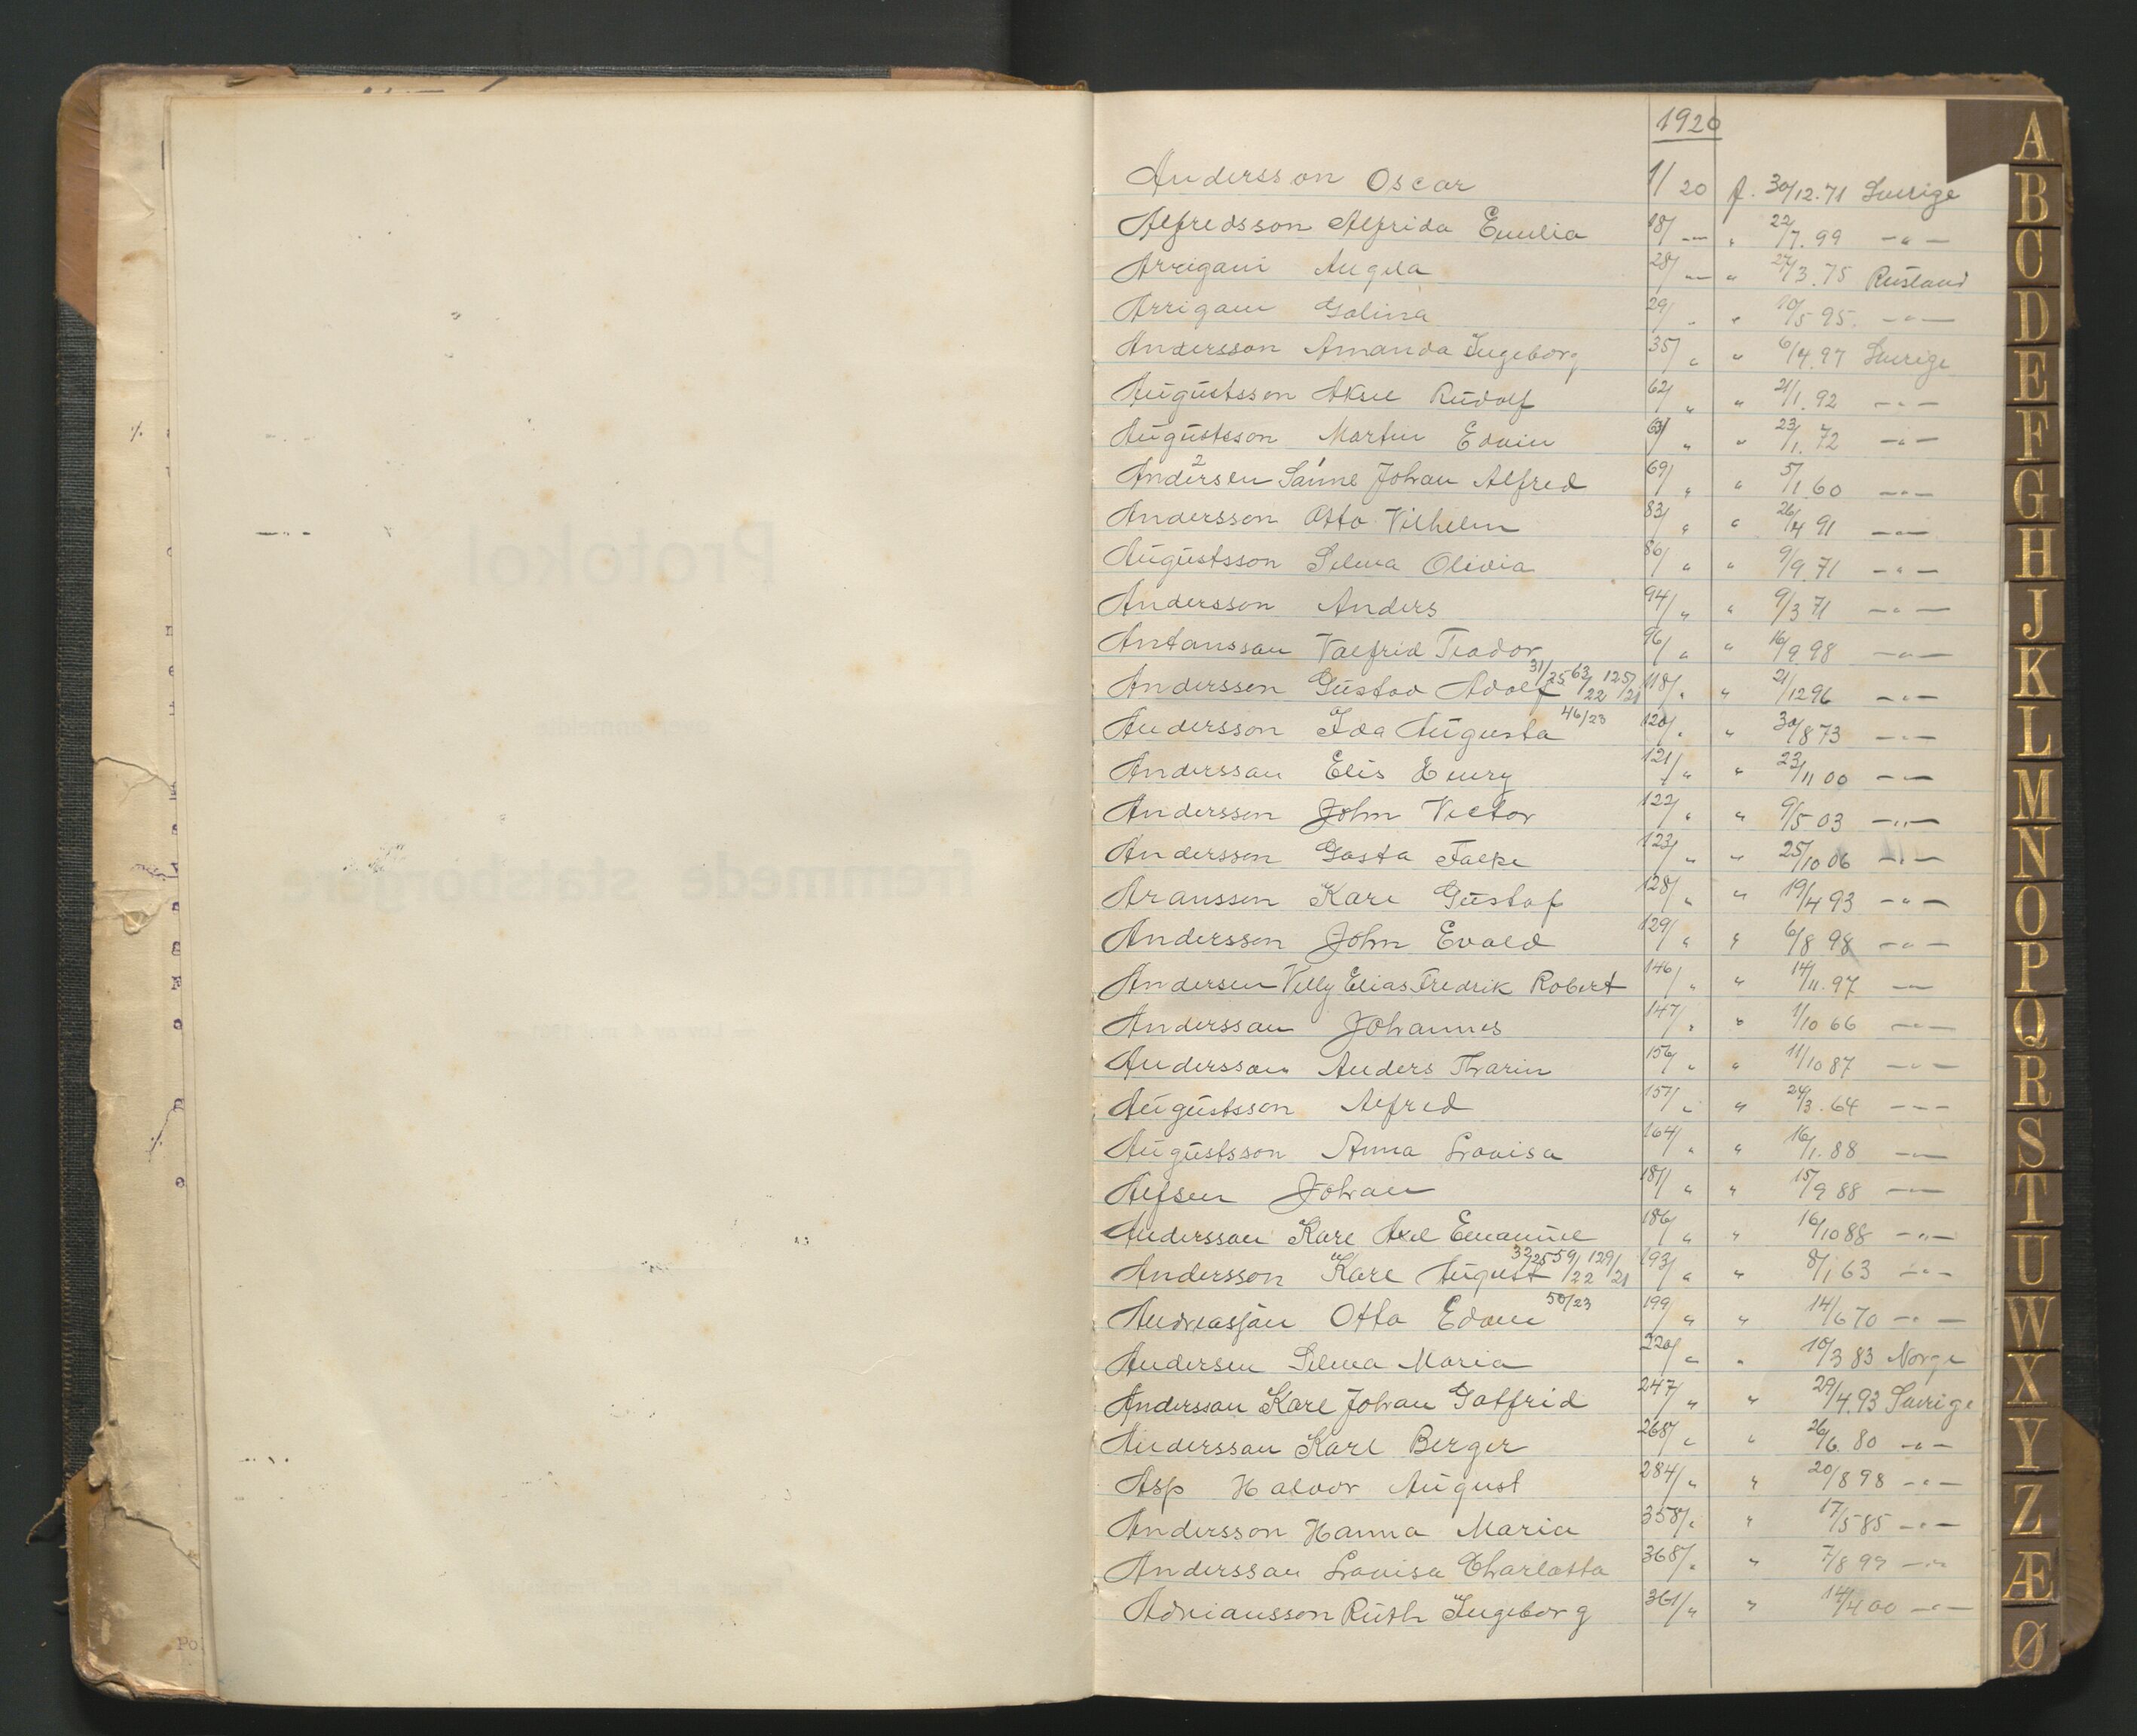 1920
Andersson Oscar 1/20 f. 30/12.71 Sverige
Alfredsson Alfrida Emilia 18/ — " 22/7.99 — " —
Arrigani Angela 28/ — " 27/3.75 Rusland
Arrigani Galina 29/ " " 10/5 95. — " —
Andersson Amanda Ingeborg 35/ " " 6/4.97 Sverige
Augustsson Aksel Rudolf 62/ " " 21/1.92 — " —
Augustsson Martin Edvin 63/ " " 23/1.72 — " —
Andersen Sanne Johan Alfred 69/ " " 5/1 60 — " —
Andersson Otto Vilhelm 83/ " " 26/4 91 — " —
Augustsson Selma Olivia 86/ " " 9/9.71 — " —
Andersson Anders 94/ " " 9/3 71 — " —
Antansson Valfrid Teodor 96/ " " 16/9 98 — " —
Andersson Gustav Adolf 31/25 63/22 125/21 118/ " " 21/12 96 — " —
Andersson Ida Augusta 46/23 120/ " " 30/8 73 — " —
Anderssan Elis Henry 121/ " " 23/11 00 — " —
Andersson John Victor 122/ " " 9/5 03 — " —
Andersson Gosta Falke 123/ " " 25/10 06 — " —
Aransson Karl Gustaf 128/ " " 19/4 93 — " —
Andersson John Evald 129/ " " 6/8 98 — " —
Andersen Villy Elias Fredrik Robert 146/ " " 14/11.97 — " —
Anderssan Johannes 147/ " " 1/10 66 — " —
Anderssan Anders Tharin 156/ " " 11/10 87 — " —
Augustsson Alfred 157/ " " 24/3.64 — " —
Augustsson Anna Lovisa 164/ " " 16/1.88 — " —
Alfsen Johan 181/ " " 15/9 88 — " —
Anderssan Karl Axel Emanuel 186/ " " 16/10 88 — " —
Andersson Karl August 32/25 59/22 129/21 193/ " " 8/1 63 — " —
Andreasjan Otto Edvin 50/23 199/ " " 14/6 70 — " —
Andersen Selma Maria 220/ " " 10/3 83 Norge
Anderssan Karl Johan Gotfrid 247/ " " 29/4.93 Sverige
Anderssan Karl Berger 268/ " " 26/6. 80 — " —
Asp Halvor August 284/ " " 20/8 98 — " —
Andersson Hanna Maria 358/ " " 17/5 85 — " —
Anderssan Lovisa Charlatta 368/ " " 7/8 99 — " —
Adriansson Ruth Ingeborg 361/ " " 14/4 00 — " —
A
B
C
D
E
F
G
H
J
K
L
M
N
O
P
Q
R
S
T
U
W
X
Y
Z
Æ
Ø